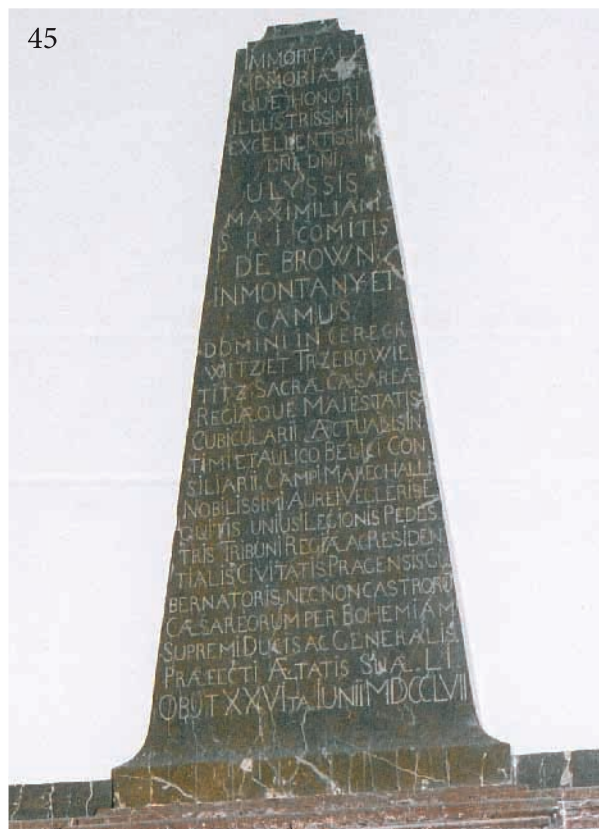 45
IMMORTALI
MEMORIÆ
QUE HONORI
ILLUSTRISSIMI AC
EXCELLENTISSIMI
DNI DNI,
ULYSSIS
MAXIMILIANI
S. R. I. COMITIS
DE BROWN
IN MONTANY ET
CAMUS
DOMINI IN CERECK
WITZ ET TRZEBOWIE
TITZ SACRÆ CÆSAREÆ
REGIÆQUE MAIESTATIS
CUBICULARII ÆCTUALIS IN
TIMI ET AULICO BELLICI CON
SILIARII CAMPI MARECHALLI
NOBILISSIMI AUREI VELLERIS E
QUITIS UNIUS LEGIONIS PEDES
TRIS TRIBUNI REGIÆ AC RESIDEN
TIALIS CIVITATIS PRAGENSIS GU
BERNATORIS, NEC NON CASTRORŪ
CÆSAREORUM PER BOHEMIAM
SUPREMI DUCIS AC GENERALIS
PRÆLECTI ÆTATIS SUÆ LI
OBIIT XXVITA IUNII MDCCLVII